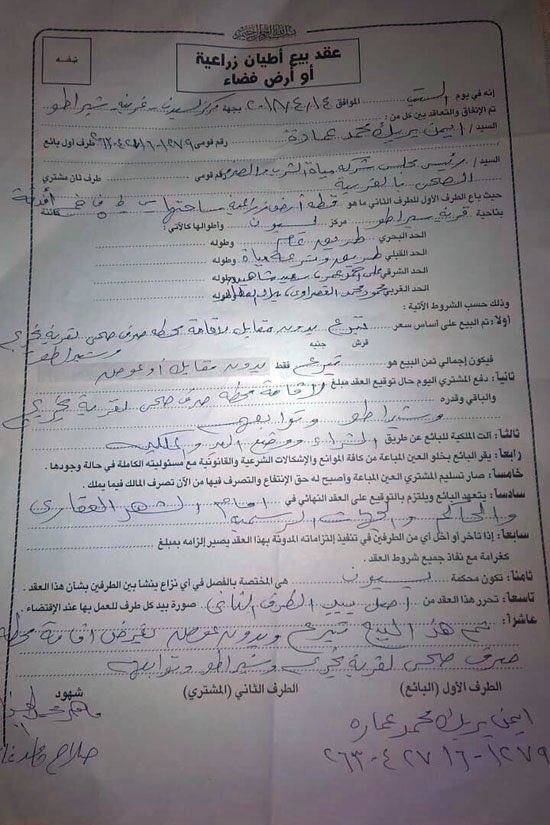 عقد بيع أطيان زراعية
أو أرض فضاء
إنه في يوم السبت الموافق ٢٠١٨/٤/١٤ بجهة مركز بسيون - غربية - شبراطو
تم الإتفاق والتعاقد بين كل من :
السيد / ايمن بريك محمد عمارة رقم قومى ٢٦٣٠٤٢٧١٦٠١٢٧٩ طرف أول بائع
السيد / رئيس مجلس شركة مياة الشرب والصرف رقم قومى طرف ثان مشتري
الصحى بالغربية
حيث باع الطرف الأول للطرف الثانى ما هو قطعة أرض زراعية مساحتها
بناحية قرية شبراطو مركز بسيون وأطوالها كالآتي : كائنة
الحد البحري طريق عام وطوله
الحد القبلي طريق وترعة مياة وطوله
الحد الشرقي وطوله
الحد الغربي وطوله
وذلك حسب الشروط الآتية :
أولاً : تم البيع على أساس سعر تبرع بدون مقابل لاقامة محطة صرف صحى لقرية
قرش جنيه وشبراطو
فيكون إجمالي ثمن البيع هو تبرع فقط بدون مقابل أو عوض
ثانياً : دفع المشتري اليوم حال توقيع العقد مبلغ لاقامة محطة صرف صحى لقرية
والباقي وقدره وشبراطو وتوابعها
ثالثاً : آلت الملكية للبائع عن طريق الشراء ووضع اليد والملكية
رابعاً : يقر البائع بخلو العين المباعة من كافة الموانع والإشكالات الشرعية والقانونية مع مسئوليته الكاملة في حالة وجودها .
خامساً : صار تسليم المشتري العين المباعة وأصبح له حق الإنتفاع والتصرف فيها من الآن تصرف المالك فيما يملك .
سادساً : يتعهد البائع ويلتزم بالتوقيع على العقد النهائي في امام الشهر العقارى
والمحاكم والجهات الرسمية
سابعاً : إذا تأخر أو أخل أي من الطرفين في تنفيذ إلتزاماته المدونة بهذا العقد يصير إلزامه بمبلغ
كغرامة مع نفاذ جميع شروط العقد .
ثامناً : تكون محكمة بسيون هي المختصة بالفصل في أي نزاع ينشأ بين الطرفين بشأن هذا العقد .
تاسعاً : تحرر هذا العقد من اصل بيد الطرف الثانى صورة بيد كل طرف للعمل بها عند الإقتضاء .
عاشراً : تم هذا البيع تبرع وبدون عوض لغرض اقامة محطة
صرف صحى لقرية وشبراطو وتوابعها
الطرف الأول (البائع) الطرف الثاني (المشتري) شهود
ايمن بريك محمد عمارة
٢٦٣٠٤٢٧١٦٠١٢٧٩ صلاح